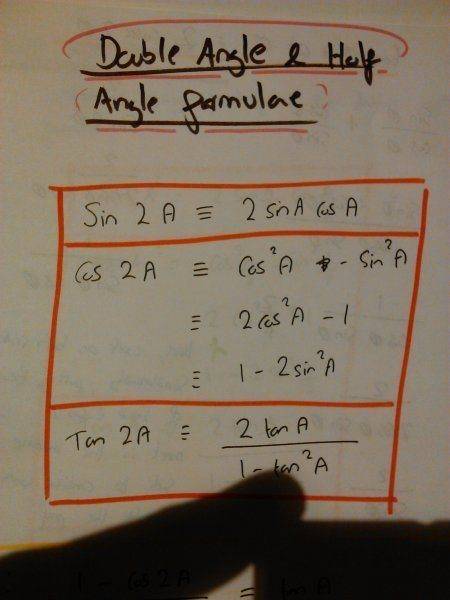 Double Angle & Half
Angle formulae
Sin 2A ≡ 2 sinA cosA
Cos 2A ≡ Cos²A - Sin²A
≡ 2cos²A - 1
≡ 1 - 2sin²A
Tan 2A ≡ 2 tanA
1 - tan²A
1 - Cos 2A
≡ tan A